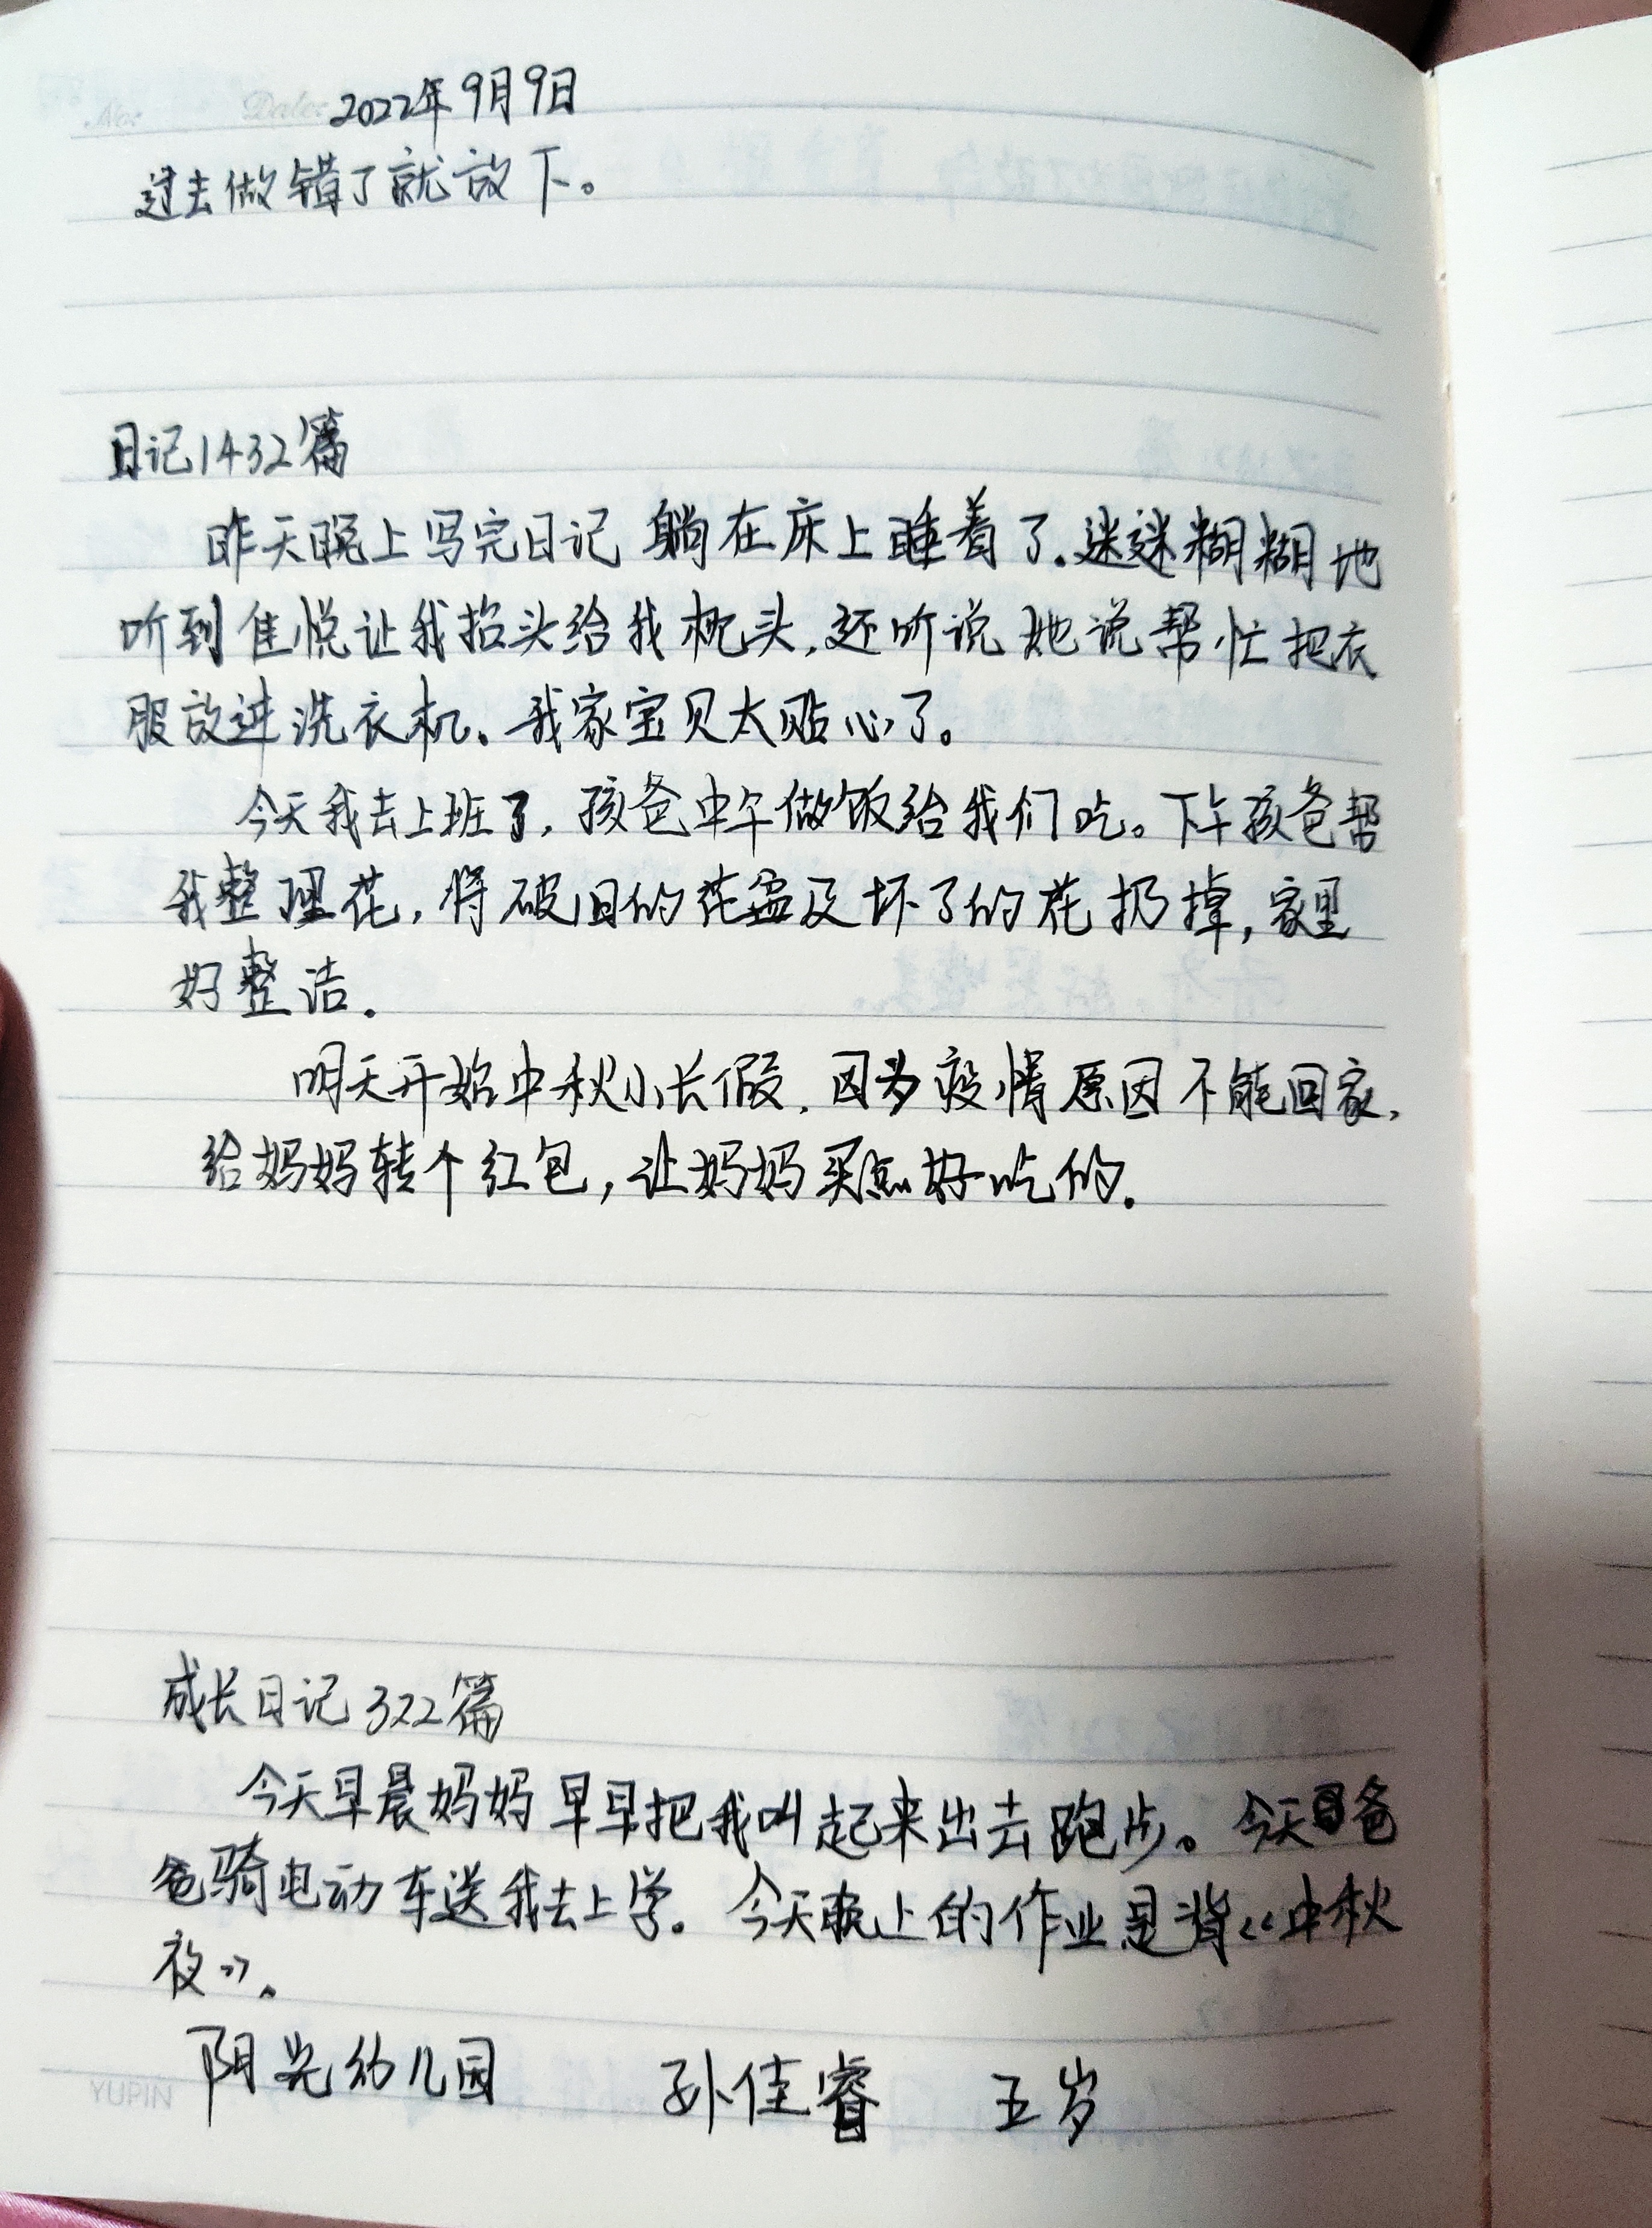 No: Date: 2022年9月9日
过去做错了就放下。
日记1432篇
昨天晚上写完日记躺在床上睡着了.迷迷糊糊地
听到佳悦让我抬头给我枕头,还听说她说帮忙把衣
服放进洗衣机。我家宝贝太贴心了。
今天我去上班了,孩爸中午做饭给我们吃。下午孩爸帮
我整理花,将破旧的花盆及坏了的花扔掉,家里
好整洁.
明天开始中秋小长假,因为疫情原因不能回家,
给妈妈转个红包,让妈妈买点好吃的.
成长日记322篇
今天早晨妈妈早早把我叫起来出去跑步。今天爸
爸骑电动车送我去上学。今天晚上的作业是背《中秋
夜》.
阳光幼儿园 孙佳睿 五岁
YUPIN